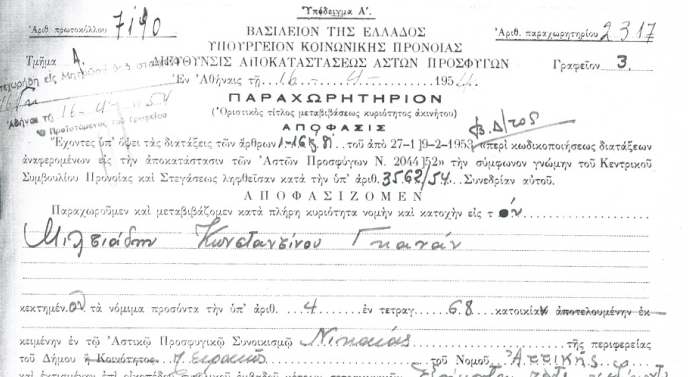 Ὑπόδειγμα Α΄.
Ἀριθ πρωτοκόλλου 7190
ΒΑΣΙΛΕΙΟΝ ΤΗΣ ΕΛΛΑΔΟΣ
Ἀριθ. παραχωρητηρίου 2317
ΥΠΟΥΡΓΕΙΟΝ ΚΟΙΝΩΝΙΚΗΣ ΠΡΟΝΟΙΑΣ
Τμῆμα Α.
ΔΙΕΥΘΥΝΣΙΣ ΑΠΟΚΑΤΑΣΤΑΣΕΩΣ ΑΣΤΩΝ ΠΡΟΣΦΥΓΩΝ
Γραφεῖον 3.
Ἐν Ἀθήναις τῇ 16 - 4 - 1954
Ἀθῆναι τῇ 16-4-1954
Ὁ Προϊστάμενος τοῦ Γραφείου
ΠΑΡΑΧΩΡΗΤΗΡΙΟΝ
(Ὁριστικὸς τίτλος μεταβιβάσεως κυριότητος ἀκινήτου)
ΑΠΟΦΑΣΙΣ
Ἔχοντες ὑπ᾽ ὄψει τὰς διατάξεις τῶν ἄρθρων 1-16 τοῦ ἀπὸ 27-1]9-2-1953 Β. Δ/τος «περὶ κωδικοποιήσεως διατάξεων
ἀναφερομένων εἰς τὴν ἀποκατάστασιν τῶν Ἀστῶν Προσφύγων Ν. 2044]52» τὴν σύμφωνον γνώμην τοῦ Κεντρικοῦ
Συμβουλίου Προνοίας καὶ Στεγάσεως ληφθεῖσαν κατὰ τὴν ὑπ᾽ ἀριθ. 3562/54. Συνεδρίαν αὐτοῦ.
ΑΠΟΦΑΣΙΖΟΜΕΝ
Παραχωροῦμεν καὶ μεταβιβάζομεν κατὰ πλήρη κυριότητα νομὴν καὶ κατοχὴν εἰς τ όν
Μιλτιάδην Κωνσταντίνου
κεκτημέν. ον τὰ νόμιμα προσόντα τὴν ὑπ᾽ ἀριθ. 4 ἐν τετραγ. 68 κατοικίαν ἀποτελουμένην ἐκ
κειμένην ἐν τῷ Ἀστικῷ Προσφυγικῷ Συνοικισμῷ Νικαίας τῆς περιφερείας
τοῦ Δήμου ἢ Κοινότητος τοῦ Νομοῦ Ἀττικῆς